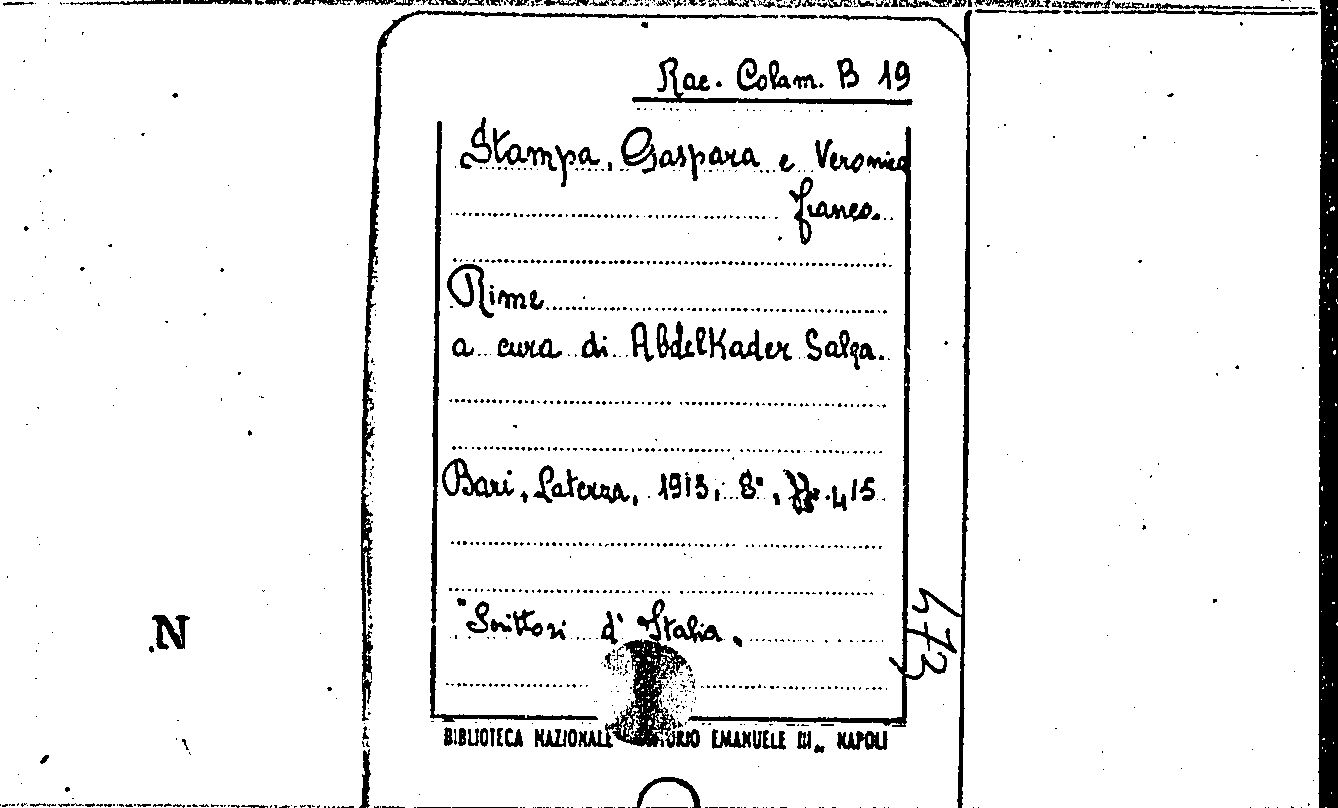 Rac. Colam. B 19
Stampa, Gaspara e Veronica
Franco.
Rime
a cura di AbdelKader Salza.
Bari, Laterza, 1913, 8°, pp. 415
"Scrittori d'Italia„
473
N
BIBLIOTECA NAZIONALE EMANUELE III„ NAPOLI